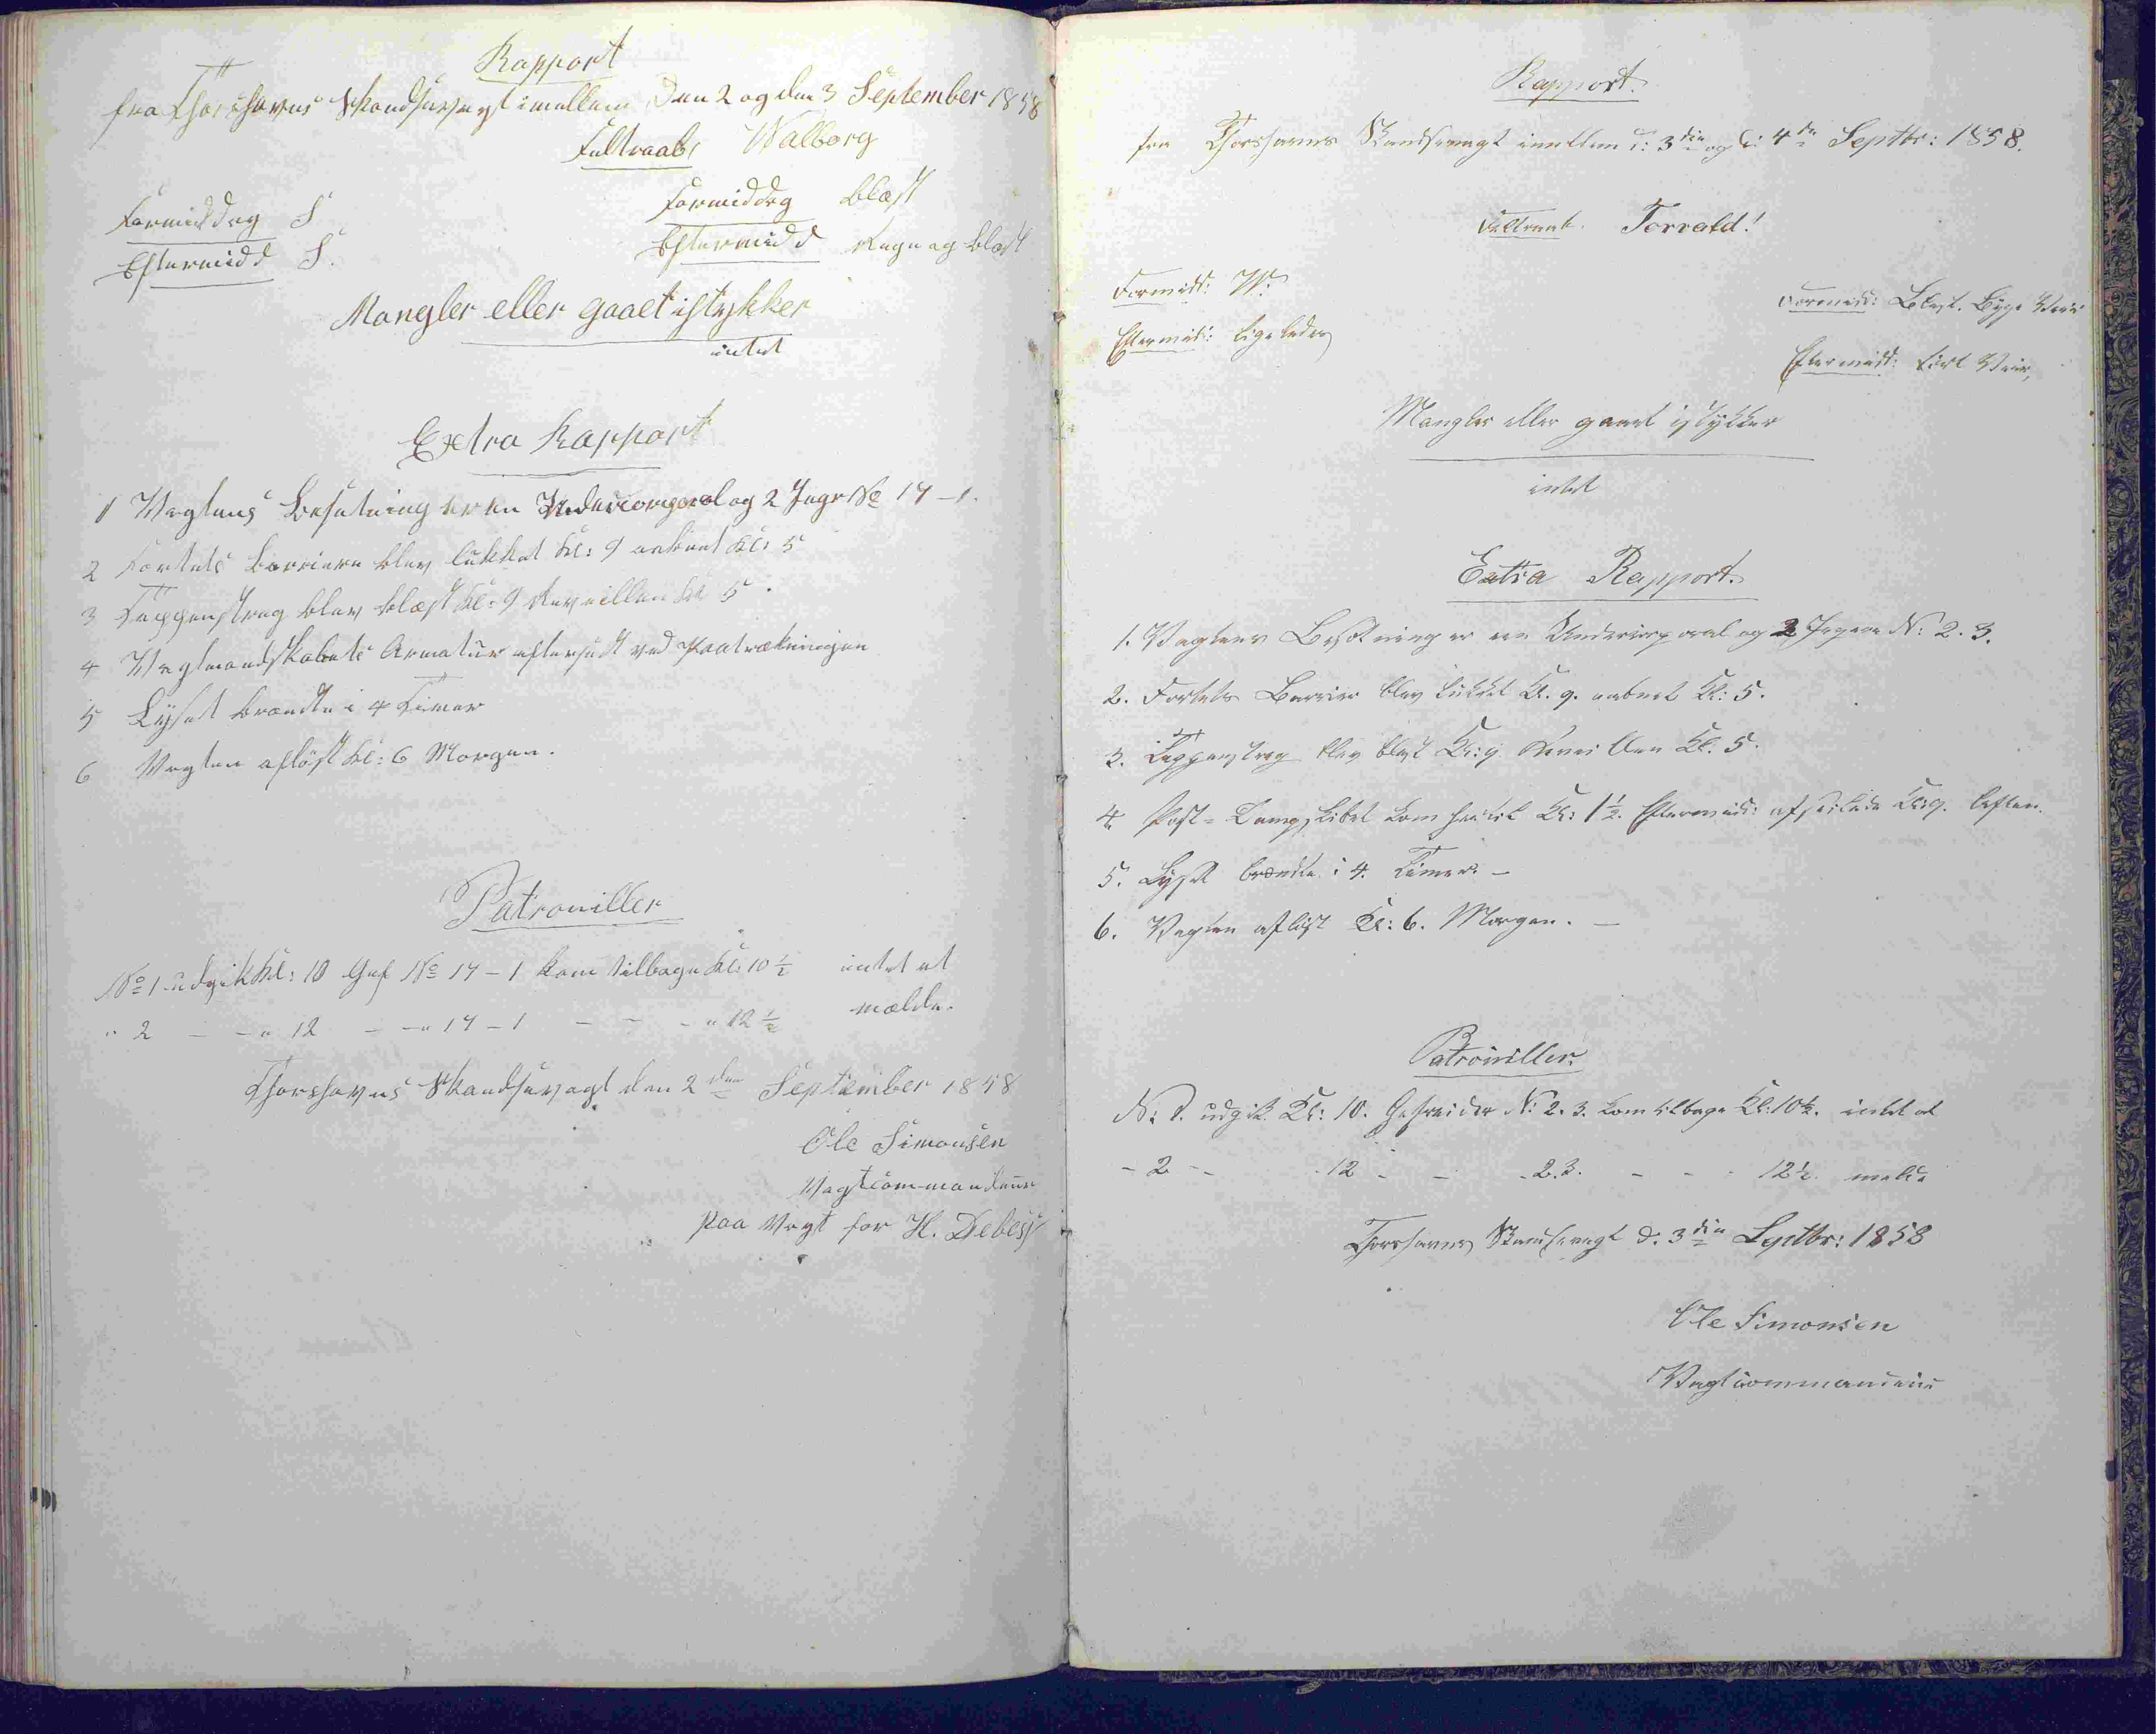 Rapport
fra Thorshavns Skandsevagt imellem Den 2 og den 3 September 1858
Feltraab Walborg
Formiddag S Formiddag blæst
Eftermidd S. Eftermidd Regn og blæst
Mangler eller gaaet istykker
intet
Extra Rapport
1 Vagtens Besætning er en Undercorporal og 2 Jægr No 14-1.
2 Fortets Barriere blev lukket Kl: 9 aabnet Kl: 5
3 Tappenstreg blev blæst Kl: 9 Reveillen Kl 5.
4 Vagtmandskabets Armatur efterseet ved Paatrækningen
5 Lyset brændte i 4 Timer
6 Vagten afløst Kl: 6 Morgen.
Patrouiller
No 1 udgik Kl: 10 Gef No 14-1 kom tilbage Kl: 10 1/2 intet at
" 2 - - " 12 - - " 14-1 - - - " 12 1/2 mælde.
Thorshavns Skandsevagt den 2den September 1858
Ole Simonsen
Vagtcommandeur
paa Vagt for H. Debess
Rapport.
fra Thorshavns Skandsevagt imellem d: 3die og d: 4de Septbr: 1858.
Feltraab. Torvald!
Formidd: W. Formidd: Blæst. Byge Veir
Eftermid: ligeledes Eftermidd: Veir,
Mangler eller gaaet istykker
intet
Extra Rapport.
1. Vagtens Besætning er een Undercorporal og 2 Jægere N: 2. 3.
2. Fortets Barrier blev lukket Kl. 9. aabnet Kl: 5.
3. Tappenstreg blev blæst Kl: 9 Reveillen Kl. 5.
4. Post-Dampskibet kom hertil Kl: 1 1/2. Eftermid: afseilede Kl: 9. Aften.
5. Lyset brændte i 4. Timer. -
6. Vagten afløst Kl: 6. Morgen. -
Patrouiller.
N: 1. udgik Kl: 10. Gefreider N: 2. 3. kom tilbage Kl: 10 1/2. intet at
- 2 - - 12 - - 2.3. - - - 12 1/2. melde
Thorshavns Skandsevagt d. 3die Septbr: 1858
Ole Simonsen
Vagtcommandeur